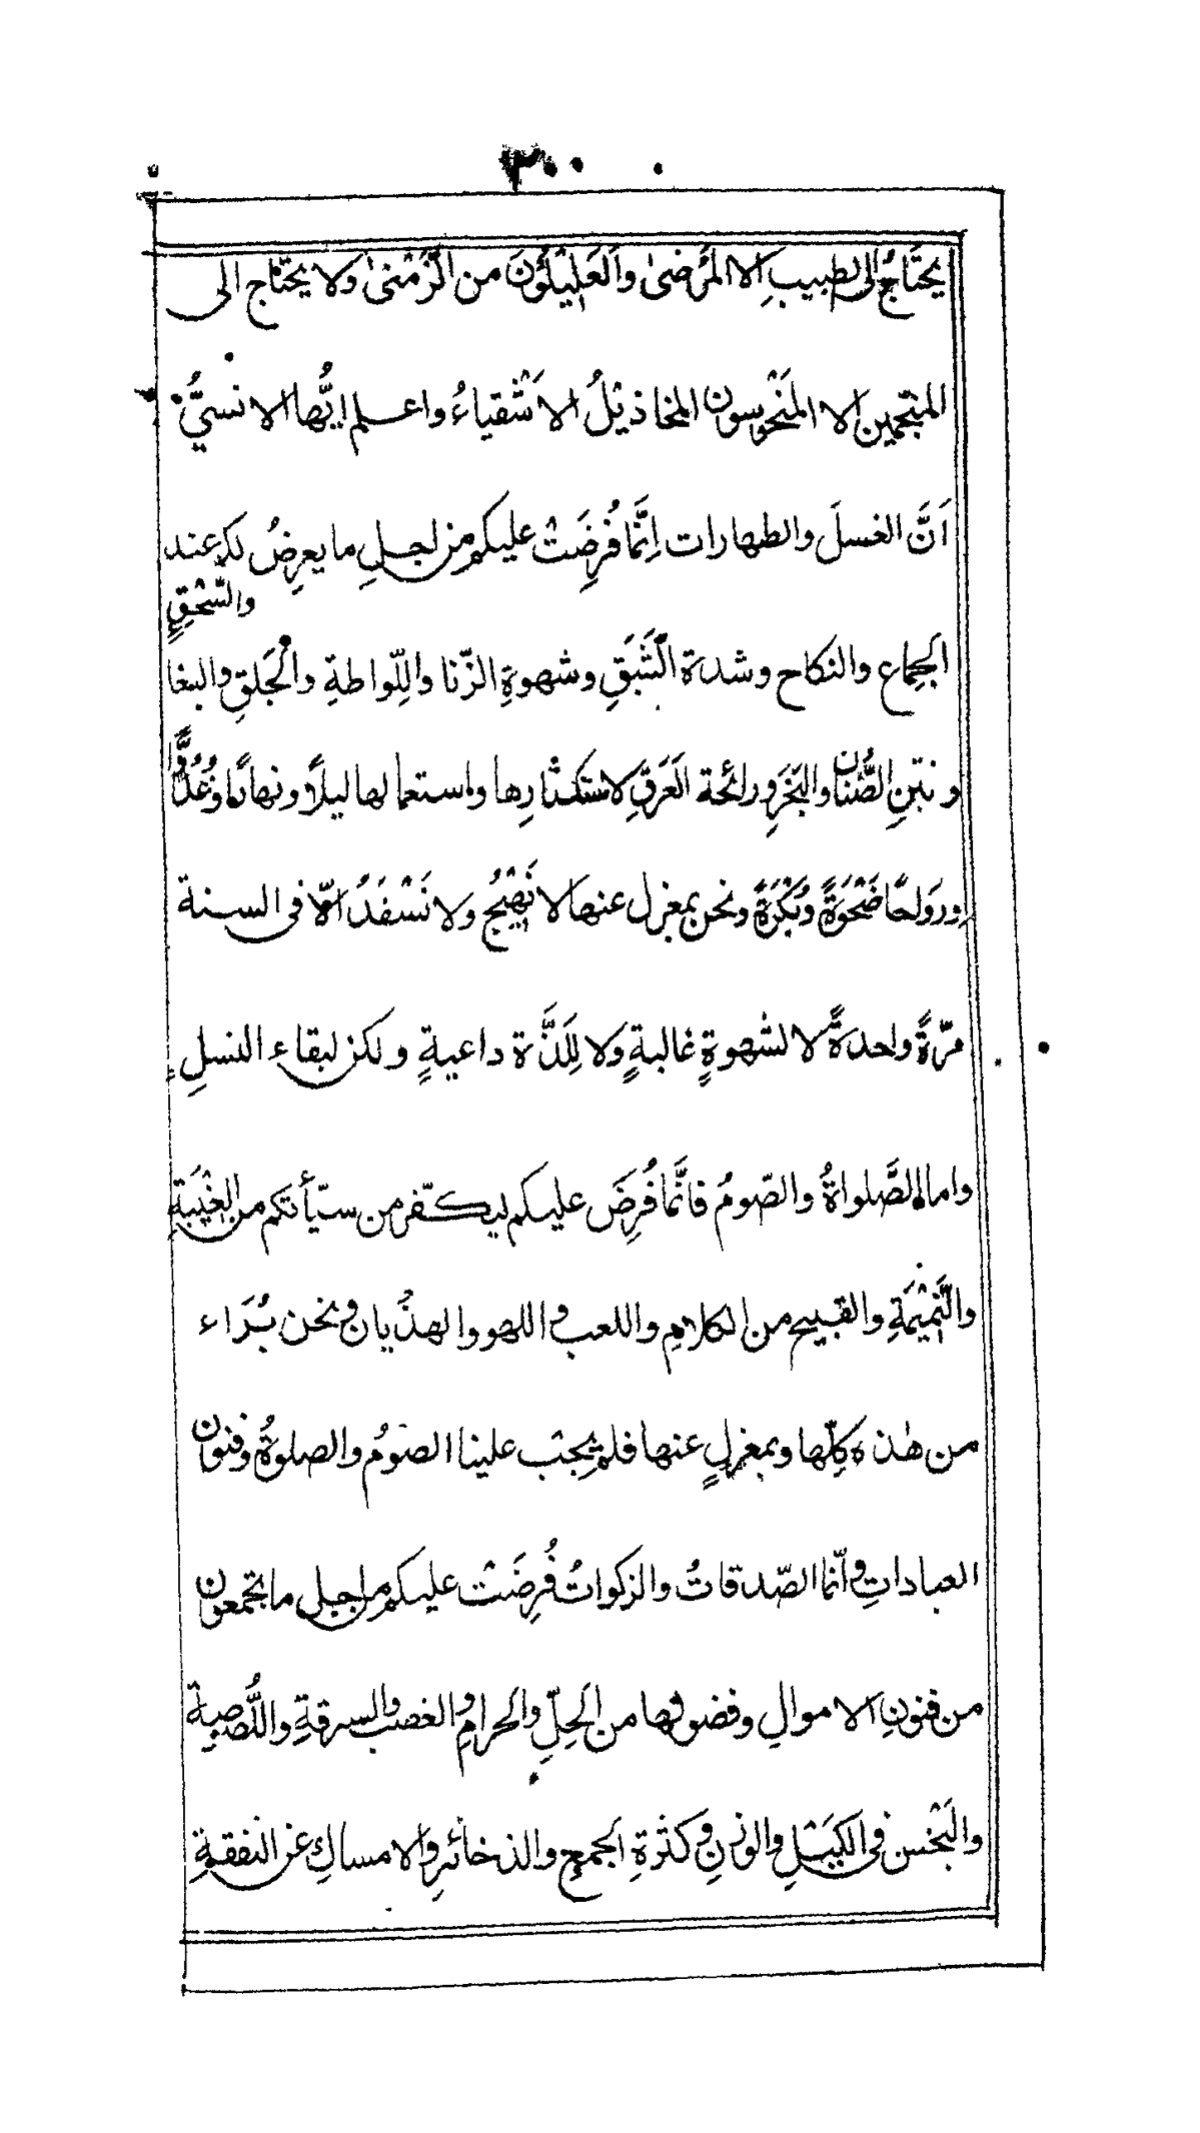 ٣٠٠
يحتَاجُ الى الطبيبِ الا المَرضىٰ والعَلِيْلُوْنَ من الزَّمْنىٰ ولا يحتاج الى
المنجّمين الا المَنْحُوسون المخاذيْلُ الاَشْقياءُ واعلم ايُّها الانسىُّ
اَنَّ الغسلَ والطهارات اِنَّما فُرِضَتْ عليكم من اجلِ ما يعرِضُ لكم عند
الجِماع والنكاح وشدة الشَّبَقِ وشهوةِ الزّنا واللِّواطةِ والْجَلقِ والسّحْقِ والبغا
ونتنِ الصُّنان والبَخَرِ ورائحة العَرَقِ لاستكثارِها واستعمالها ليلاً ونهارًا وغُدُوًّا
ورَواحًا ضَحْوَةً وبُكْرَةً ونحن بمعزل عنها لا نَهِيْجُ ولا نَسْفَدُ الّا فى السنة
مرّةً واحدةً لا لشهوةٍ غالبةٍ ولا لِلَذَّة داعيةٍ ولكن لبقاء النسلِ
واما الصَّلواةُ والصّومُ فانَّما فُرِضَ عليكم ليكفّر من سيّأتكم من الغِيْبَةِ
والنَّمِيْمَةِ والقبيح من الكلامِ واللعب و اللهو والهذْيان ونحن بُرَاء
من هٰذه كلِّها وبمعزلٍ عنها فلم يجبْ علينا الصّومُ والصلوةُ وفنون
العباداتِ وانّما الصّدقاتُ والزكواتُ فُرِضَتْ عليكم من اجل ما تجمعون
من فنونِ الاموالِ وفضولها من الحِلِّ والحرامِ والغصب والسرقةِ واللُّصُصِيةِ
والبَخْس فى الكَيْلِ والوزنِ وكثرةِ الجمعِ والذخائرِ والامساكِ عن النفقةِ